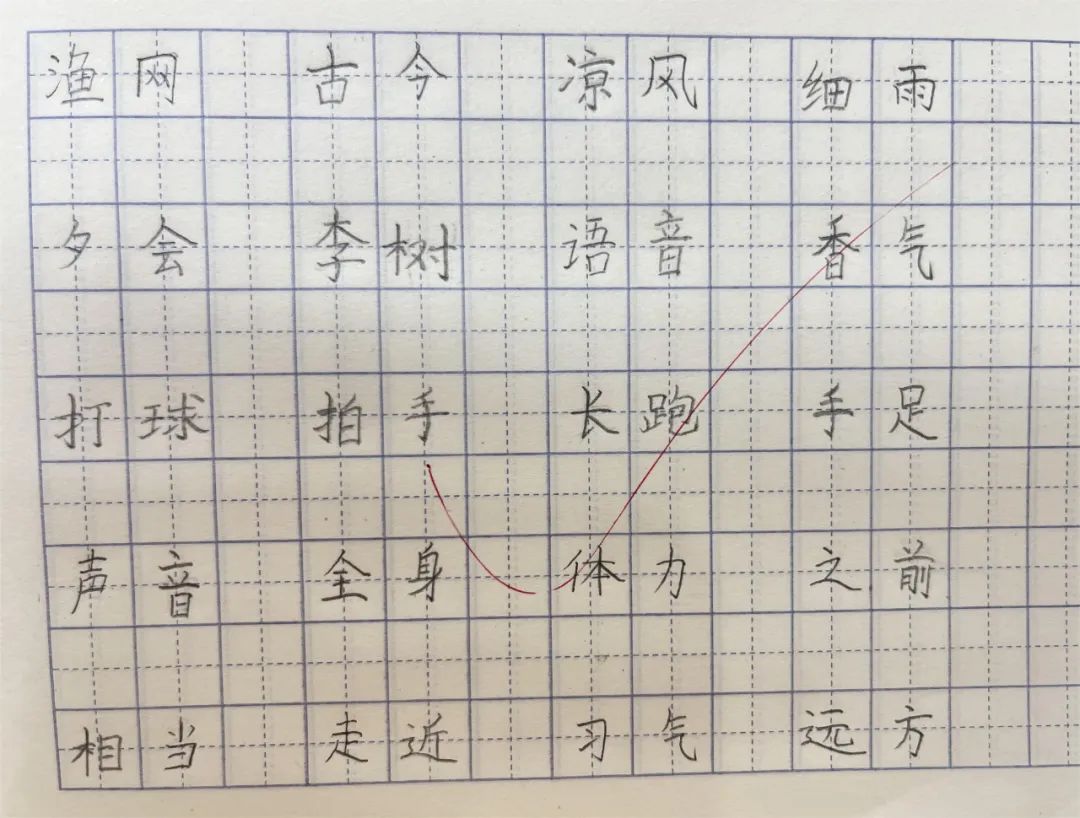 渔网 古今 凉风 细雨
夕会 李树 语音 香气
打球 拍手 长跑 手足
声音 全身 体力 之前
相当 走近 习气 远方